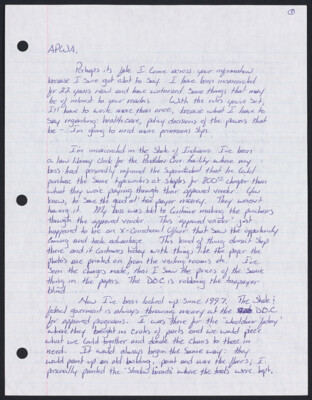 ①
APWA,
Perhaps its fate I come across your information
because I sure got alot to say. I have been incarcerated
for 22 years now and have witnessed some things that may
be of interest to your readers. With the rules you've set,
I'll have to write more than once, because what I have to
say regarding healthcare, petty decisions of the powers that
be - I'm going to need more permission slips.
I'm incarcerated in the State of Indiana. I've been
a law library clerk for the facility where my
boss had personally informed the Superintendent that he could
purchase the same typewriters at Staples for 200% cheaper than
what they were paying through their approved vendor. You
know, to save the good ol' tax payer money. They weren't
having it. My boss was told to continue making the purchases
through the approved vendor. This approved vendor just
happened to be an x-Correctional Officer that saw the opportunity
coming and took advantage. This kind of thing doesn't stop
there and it continues today with things like the paper the
photos are printed on from the visiting rooms etc. I've
seen the changes made, then I saw the prices of the same
thing in the papers. The D.O.C. is robbing the taxpayer
blind.
Now I've been locked up since 1997. The State &
federal government is always throwing money at the D.O.C.
for approved programs. I was there for the "wheelchair factory"
where they bought in crates of parts and we would piece
what we could together and donate the chairs to those in
need. It would always begin the same way: they
would paint up an old building, paint and wax the floors; I
personally painted the "shadow boards" where the tools were kept.